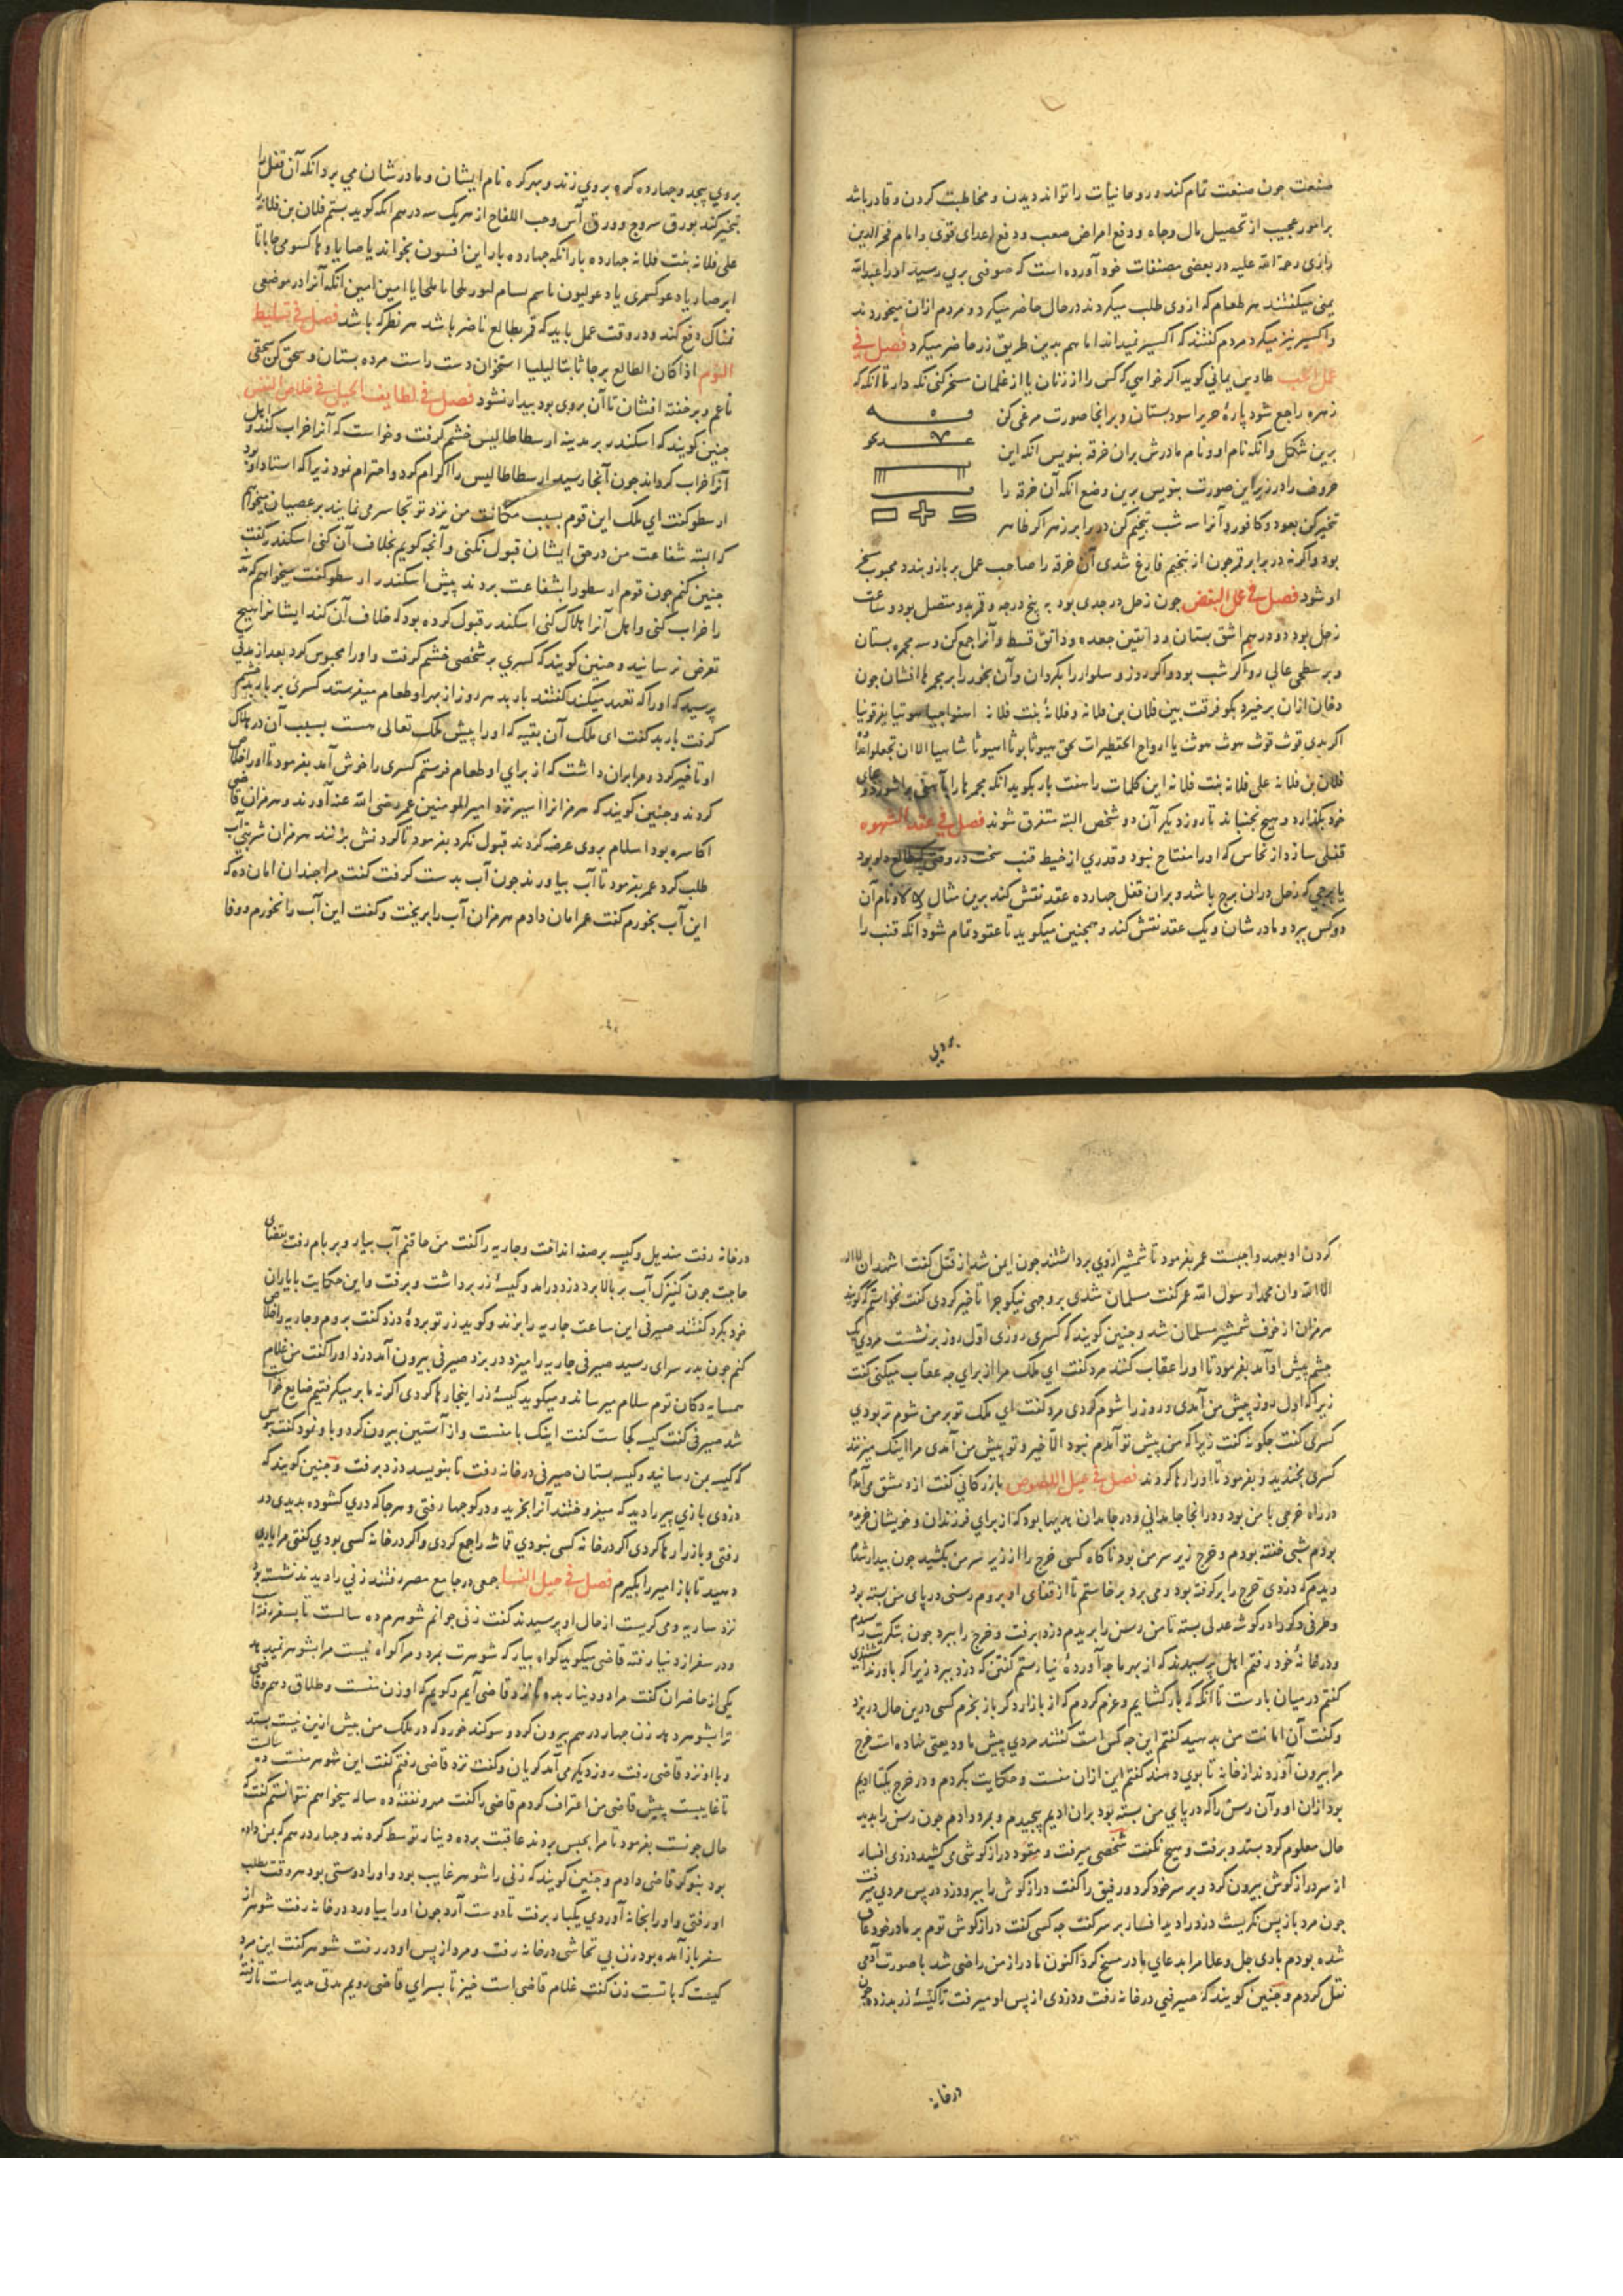 صنعت جون صنعت تمام کند و روحانیات را تواند دیدن و مخاطبت کردن و قادر باشد
بر امور عجیب از تحصیل مال و جاه و دفع امراض صعب و دفع اعدای قوی و امام فخر الدین
رازی رحمة الله علیه در بعضی مصنفات خود آورده است که صوفیی بری رسید اورا عبدالله
یمنی میکفتند هر طعام که ازوی طلب میکردند در حال حاضر میکرد و مردم ازان میخوردند
و اکسیر نیز میکرد مردم کفتند که اکسیر نمیداند اما هم بدین طریق زر حاضر میکرد فصل في
عمل الحب طاوس یماني کوید اکر خواهي که کسی را از زنان یا از غلمان مسخر کنی نکه دار تا انکه که
زهره راجع شود پارهٔ حریر اسود بستان و برانجا صورت مرغی کن
برین شکل وانکه نام او و نام مادرش بران خرقه بنویس انکه این
حروف را در زیر این صورت بنویس برین وضع انکه آن خرقه را
تبخیر کن بعود و کافور و آنرا سه شب تنجیم کن در برابر زهره اکر ظاهر
بود واکر نه در برابر قمر جون از تنجیم فارغ شدی آن خرقه را صاحب عمل بر بازو بندد محبوب مسخر
او شود فصل في عمل البغض جون زحل در جدی بود به پنج درجه و قمر بدو متصل بود و ساعت
زحل بود دو درهم اشق بستان و دانقین جعده و دانق قسط و آنرا جمع کن و سه مجمره بستان
و بر سطحی عالي رو اکر شب بود و اکر روز و سلوار را بکردان و آن بخور را بر مجمرها افشان جون
دخان ازان برخیزد بکو فرقت بین فلان بن فلانه و فلانهٔ بنت فلانه
فلان بن فلانه علی فلانه بنت فلانه این کلمات را هفت بار بکوید انکه مجمرها را
خود بکذارد و هیچ نجنباند تا روز دیکر آن دو شخص البته متفرق شوند فصل في عقد الشهوه
قفلی سازد از نحاس که اورا مفتاح نبود و قدري از خیط قنب سخت در وقتی که طالع دلو بود
یا برجی که زحل دران برج باشد و بران قفل جهارده عقد نقش کند برین مثال و نام آن
دو کس ببرد و مادرشان و یک عقد نقش کند و همجنین میکوید تا عقود تمام شود انکه قنب را
بروي
بروي پیجد و جهارده کره بروي زند و بهر کره نام ایشان و مادرشان مي برد و انکه آن قفل را
تبخیر کند بورق سروج و ورق آس و حب اللفاح از هر یک سه درهم انکه کوید بستم فلان بن فلانهٔ
علی فلانه بنت فلانه جهارده بار انکه جهارده بار این افسون بخواند
نمناک دفع کند و در وقت عمل باید که قمر بطالع ناظر باشد هر نظر که باشد فصل في تسلیط
النوم اذا کان الطالع برجا ثابتا لیلیا استخوان دست راست مرده بستان و سحق کن سحقی
ناعم و بر خفته افشان تا آن بروی بود بیدار نشود فصل في لطایف الحیل في خلاص النفس
جنین کویند که اسکندر بر مدینه ارسطاطالیس خشم کرفت و خواست که آنرا خراب کند و اهل
آنرا خراب کرداند جون آنجا رسید ارسطاطالیس را اکرام کرد و احترام نمود زیرا که استاد او بود
ارسطو کفت اي ملک این قوم بسبب مکانت من نزد تو تجاسر می نمایند بر عصیان میخواهم
که البته شفاعت من در حق ایشان قبول نکنی و آنجه کویم بخلاف آن کنی اسکندر کفت
جنین کنم جون قوم ارسطو را بشفاعت بردند پیش اسکندر ارسطو کفت میخواهم که مدینه
را خراب کنی و اهل آنرا هلاک کنی اسکندر قبول کرده بود که خلاف آن کند ایشانرا هیج
تعرض نرسانید و جنین کویند که کسري بر شخصی خشم کرفت و اورا محبوس کرد بعد از مدتي
پرسید که اورا که تعهد میکند کفتند باربد هر روز از بهر او طعام میفرستد کسری بر باربد خشم
کرفت باربد کفت ای ملک آن بقیه که اورا پیش ملک تعالی هست بسبب آن در هلاک
او تاخیر کرد و مرا بران داشت که از برای او طعام فرستم کسری را خوش آمد بفرمود تا اورا خلاص
کردند و جنین کویند که هرمزانرا اسیر نزد امیر المومنین عمر رضی الله عنه آوردند و هرمزان
اکاسره بود اسلام بروی عرضه کردند قبول نکرد بفرمود تا کردنش بزنند هرمزان شربتی آب
طلب کرد عمر بفرمود تا آب بیاورند جون آب بدست کرفت کفت مرا جندان امان ده که
این آب بخورم کفت عمر امان دادم هرمزان آب را بریخت و کفت این آب را نخورم و وفا
کردن او بعهد واجبست عمر بفرمود تا شمشیر ازوي برداشتند جون ایمن شد از قتل کفت اشهد ان لا اله
الا الله وان محمدا رسول الله عمر کفت مسلمان شدی بر وجهی نیکو جرا تاخیر کردی کفت نخواستم که کویند
هرمزان از خوف شمشیر مسلمان شد و جنین کویند که کسری روزی اول روز برنشست مردی یک
جشم پیش او آمد بفرمود تا اورا عقاب کنند مرد کفت اي ملک مرا از براي جه عقاب میکنی کفت
زیرا که اول روز پیش من آمدی و روز را شوم کردی مرد کفت اي ملک تو بر من شوم تر بودي
کسری کفت جکونه کفت زیرا که من پیش تو آمدم نبود الا خیر و تو پیش من آمدی مرا اینک میزنند
کسری بخندید و بفرمود تا اورا رها کردند فصل في حیل اللصوص بازرکاني کفت از دمشق می آمدم
در راه خرجی با من بود و در انجا جامداني و در جامدان هدیها بود که از برای فرزندان و خویشان خریده
بودم شبی خفته بودم و خرج زیر سر من بود ناکاه کسی خرج را از زیر سر من بکشید جون بیدار شدم
دیدم که دزدی خرج را برکرفته بود و می برد برخاستم تا از قفای او بروم رسنی در پای من بسته بود
و طرفی دکر را در کوشه عدلی بسته تا من رسن را بریدم دزد برفت و خرج را ببرد جون بتکریت رسیدم
و در خانهٔ خود رفتم اهل پرسیدند که از بهر ما جه آوردهٔ نیارستم کفتن که دزد ببرد زیرا که باور نداشتندی
کفتم در میان بارست تا انکه که بار کشایم و عزم کردم که از بازار دکر باز بخرم کسی درین حال در بزد
و کفت آن امانت من بدهید کفتم این جه کس است کفتند مردی پیش ما ودیعتی نهاده است خرج
مرا بیرون آوردند از خانه تا بوي دهند کفتم این ازان منست و حکایت بکردم و در خرج یکتا ادیم
بود ازان او و آن رسن را که در پاي من بسته بود بران ادیم پیجیدم و بمرد دادم جون رسن را بدید
حال معلوم کرد بستد و برفت و هیچ نکفت شخصی میرفت و مقود درازکوشی می کشید دزدی افسار
از سر درازکوش بیرون کرد و بر سر خود کرد و رفیق را کفت درازکوش را ببر و دزد در پس مردی میرفت
جون مرد باز پس نکریست دزد را دید افسار بر سر کفت جه کسی کفت درازکوش توم بر مادر خود عاق
شده بودم باری جل و علا مرا بدعای مادر مسخ کرد اکنون مادر از من راضی شد با صورت آدمی
نقل کردم و جنین کویند که صیرفیي در خانه رفت و دزدی از پس او میرفت تا کیسهٔ زر بدزدد جون
در خانه
در خانه رفت مندیل و کیسه بر صفه انداخت و جاریه را کفت من حاقنم آب بیار و بر بام رفت بقضای
حاجت جون کنیزک آب بر بالا برد دزد درامد و کیسهٔ زر برداشت و برفت و این حکایت با یاران
خود بکرد کفتند صیرفی این ساعت جاریه را بزند و کوید زر تو بردهٔ دزد کفت بروم و جاریه را خلاص
کنم جون بدر سرای رسید صیرفی جاریه را میزد در بزد صیرفی بیرون آمد دزد اورا کفت من غلام
همسایه دکان توم سلام میرساند و میکوید کیسهٔ زر اینجا رها کردی اکر نه ما بر میکرفتیم ضایع خواست
شد صیرفی کفت کیسه کجاست کفت اینک با منست و از آستین بیرون کرد و باو نمود کفت بنویس
که کیسه بمن رسانید و کیسه بستان صیرفی در خانه رفت تا بنویسد دزد برفت و جنین کویند که
دزدی بازي پیر را دید که میفروختند آنرا بخرید و در کوجها رفتی و هر جا که دري کشوده بدیدی در
رفتی و باز را رها کردی اکر در خانه کسی نبودي قماشه را جمع کردی و اکر در خانه کسی بودي کفتی مرا یاري
دهید تا باز امیر را بکیرم فصل في حیل النسا جمعی در جامع مصر رفتند زني را دیدند نشسته بود
نزد ساریه و می کریست از حال او پرسیدند کفت زنی جوانم شوهرم ده سالست تا بسفر رفته است
و در سفر از دنیا رفته قاضی میکوید کواه بیار که شوهرت بمرد و مرا کواه نیست مرا بشوهر نمیدهد
یکی از حاضران کفت مرا دو دینار بده تا نزد قاضی آیم و کویم که او زن منست و طلاق دهم و قاضی
ترا بشوهر دهد زن جهار درهم بیرون کرد و سوکند خورد که در ملک من بیش ازین نیست بستد
و با او نزد قاضی رفت روز دیکر می آمد کویان و کفت نزد قاضی رفتم کفت این شوهر منست ده سالست
تا غایبست پیش قاضی من اعتراف کردم قاضی را کفت مهر و نفقهٔ ده ساله میخواهم نتوانستم کفت که
حال جونست بفرمود تا مرا بحبس بردند عاقبت بر ده دینار توسط کردند و جهار درهم که بمن داده
بود بنوکر قاضی دادم و جنین کویند که زنی را شوهر غایب بود و اورا دوستی بود هر وقت بطلب
او رفتی و اورا بخانه آوردي یکبار برفت تا دوست آرد جون اورا بیاورد در خانه رفت شوهر از
سفر باز آمده بود زن بي تحاشی در خانه رفت و مرد از پس او در رفت شوهر کفت این مرد
کیست که با تست زن کفت غلام قاضی است خیز تا بسرای قاضی رویم مدتی مدیداست تا رفتهٔ